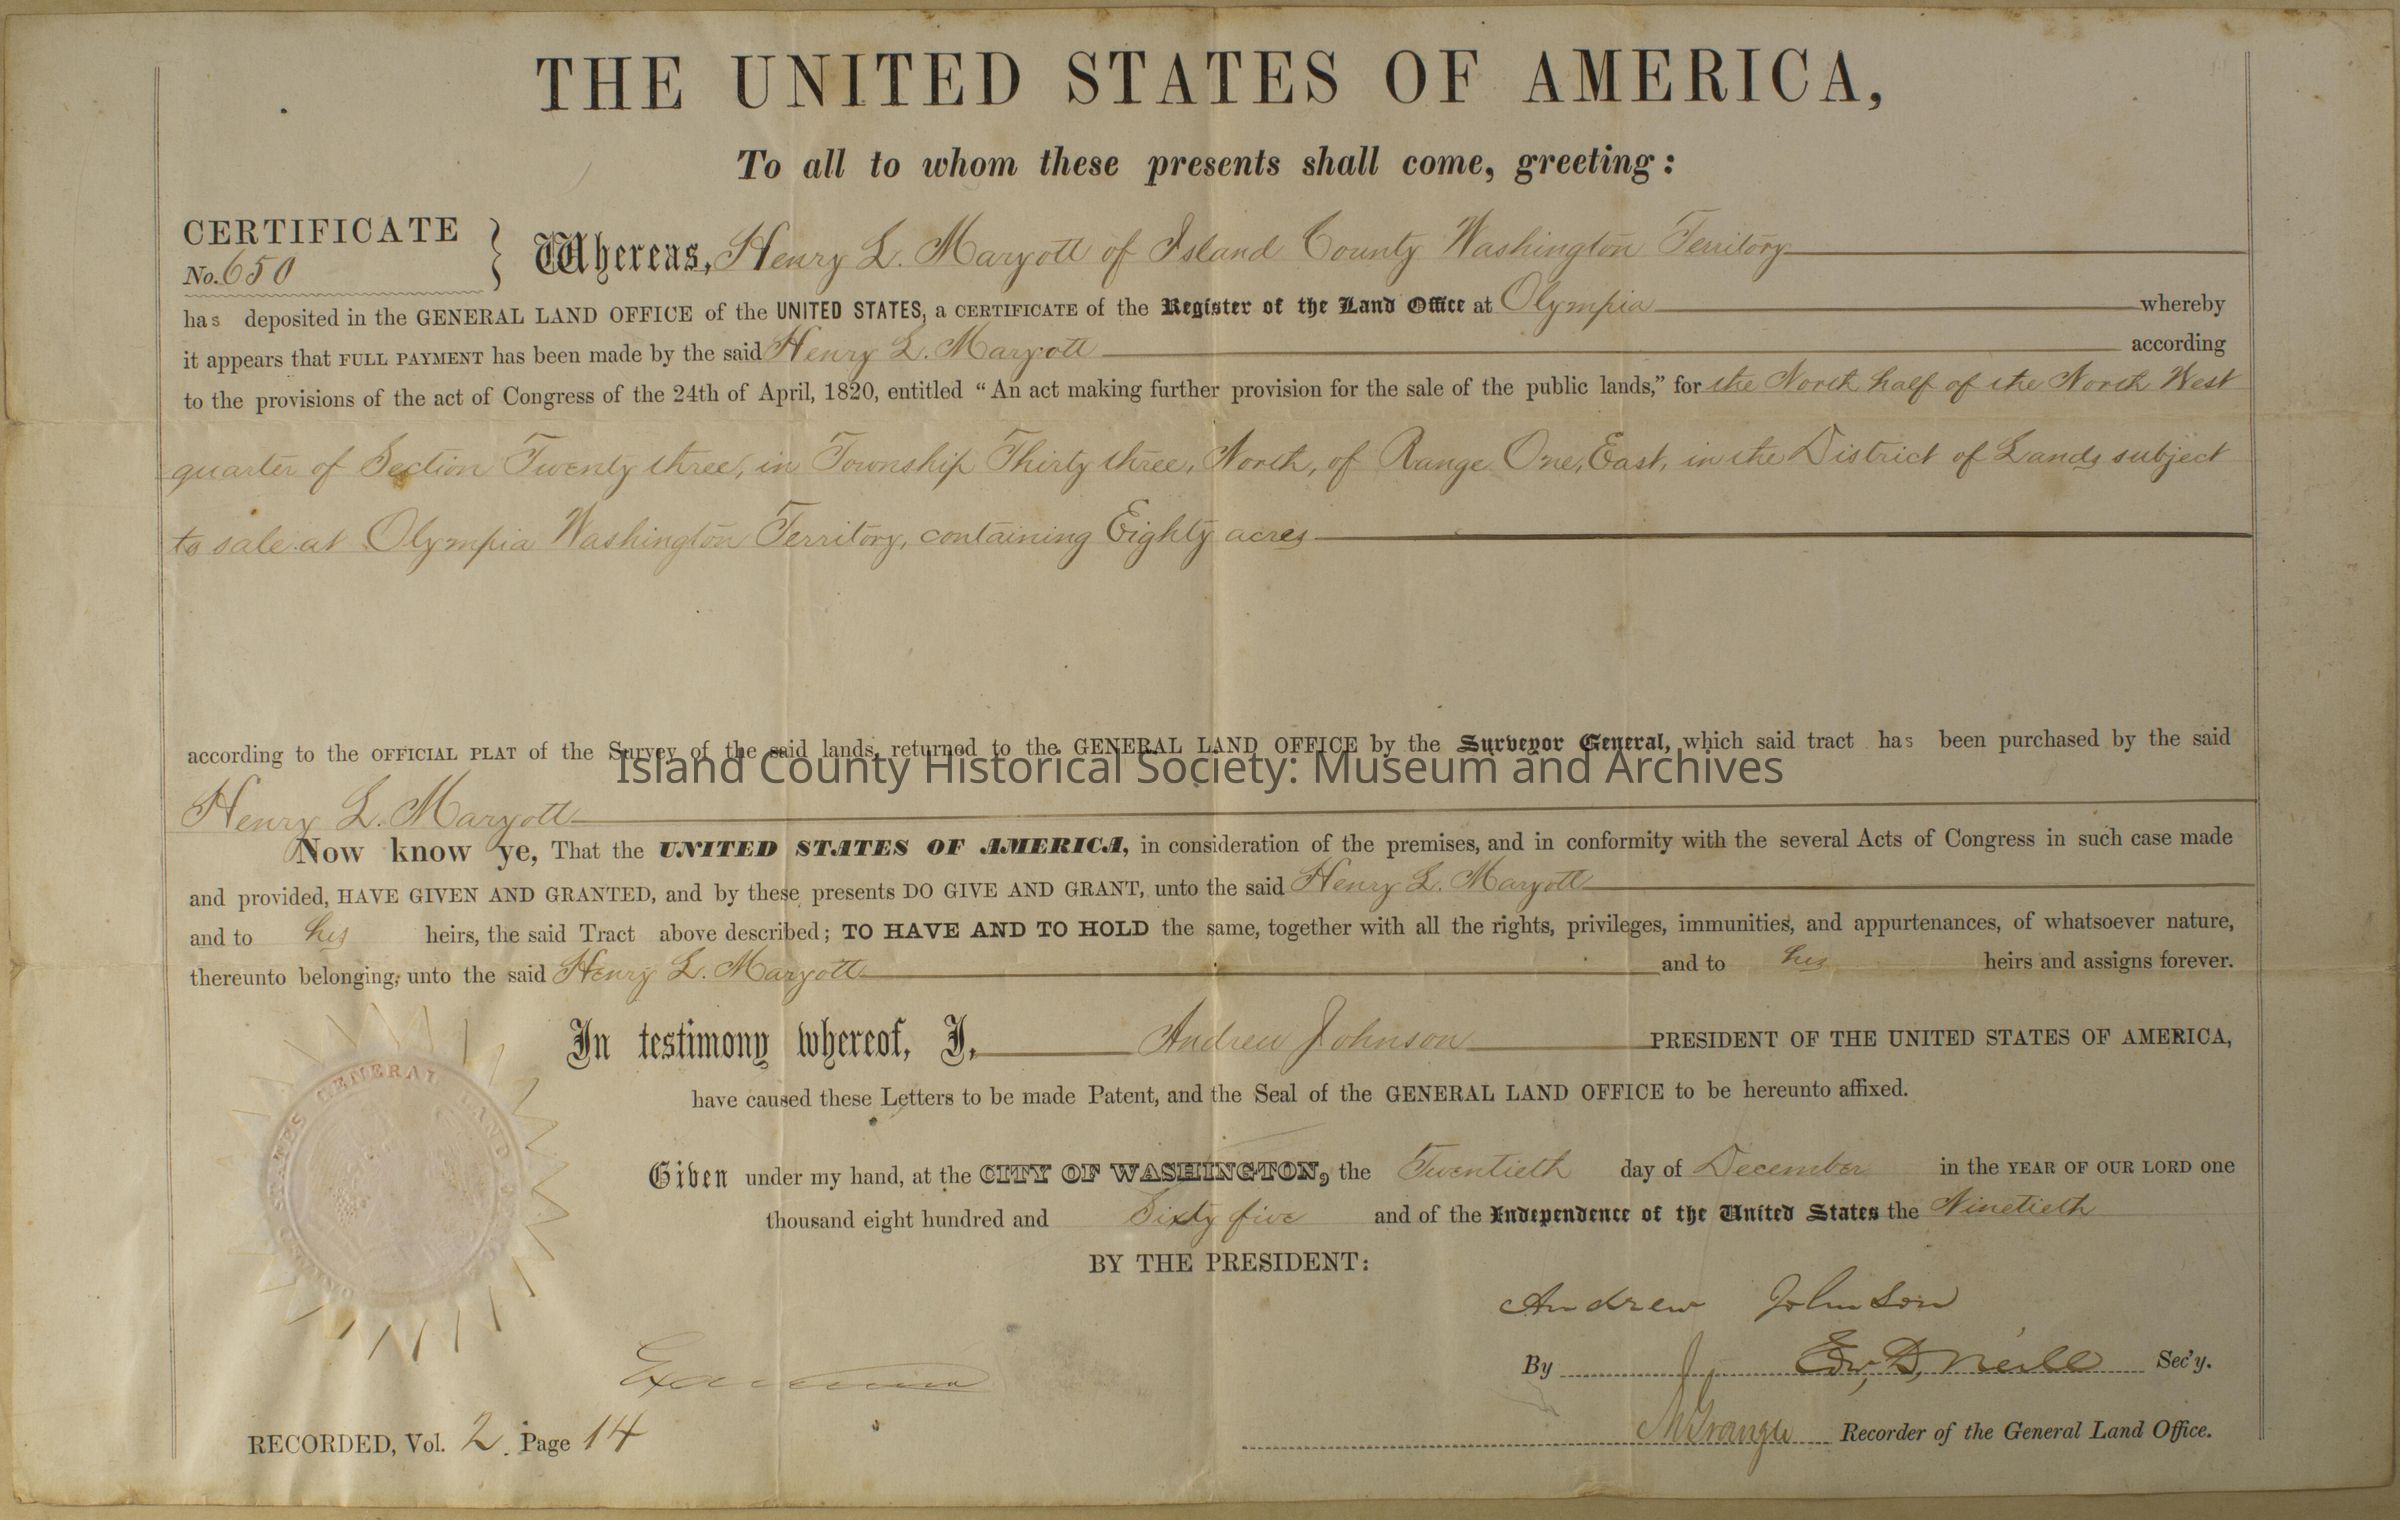 THE UNITED STATES OF AMERICA,
To all to whom these presents shall come, greeting:
CERTIFICATE
No. 650
Whereas, Henry L. Maryott of Island County Washington Territory
has deposited in the GENERAL LAND OFFICE of the UNITED STATES, a CERTIFICATE of the Register of the Land Office at Olympia whereby
it appears that FULL PAYMENT has been made by the said Henry L. Maryott according
to the provisions of the act of Congress of the 24th of April, 1820, entitled “An act making further provision for the sale of the public lands,” for the North half of the North West
quarter of Section Twenty three, in Township Thirty three, North, of Range One, East, in the District of Lands subject
to sale at Olympia Washington Territory, containing Eighty acres
according to the OFFICIAL PLAT of the Survey of the said lands, returned to the GENERAL LAND OFFICE by the Surveyor General, which said tract has been purchased by the said
Island County Historical Society: Museum and Archives
Henry L. Maryott
Now know ye, That the UNITED STATES OF AMERICA, in consideration of the premises, and in conformity with the several Acts of Congress in such case made
and provided, HAVE GIVEN AND GRANTED, and by these presents DO GIVE AND GRANT, unto the said Henry L. Maryott
and to his heirs, the said Tract above described; TO HAVE AND TO HOLD the same, together with all the rights, privileges, immunities, and appurtenances, of whatsoever nature,
thereunto belonging, unto the said Henry L. Maryott and to his heirs and assigns forever.
In testimony whereof, I, Andrew Johnson PRESIDENT OF THE UNITED STATES OF AMERICA,
have caused these Letters to be made Patent, and the Seal of the GENERAL LAND OFFICE to be hereunto affixed.
Given under my hand, at the CITY OF WASHINGTON, the Twentieth day of December in the YEAR OF OUR LORD one
thousand eight hundred and Sixty five and of the Independence of the United States the Ninetieth
BY THE PRESIDENT:
Andrew Johnson
By Edw, D, Neill Sec'y.
Recorder of the General Land Office.
RECORDED, Vol. 2. Page 14
UNITED STATES GENERAL LAND